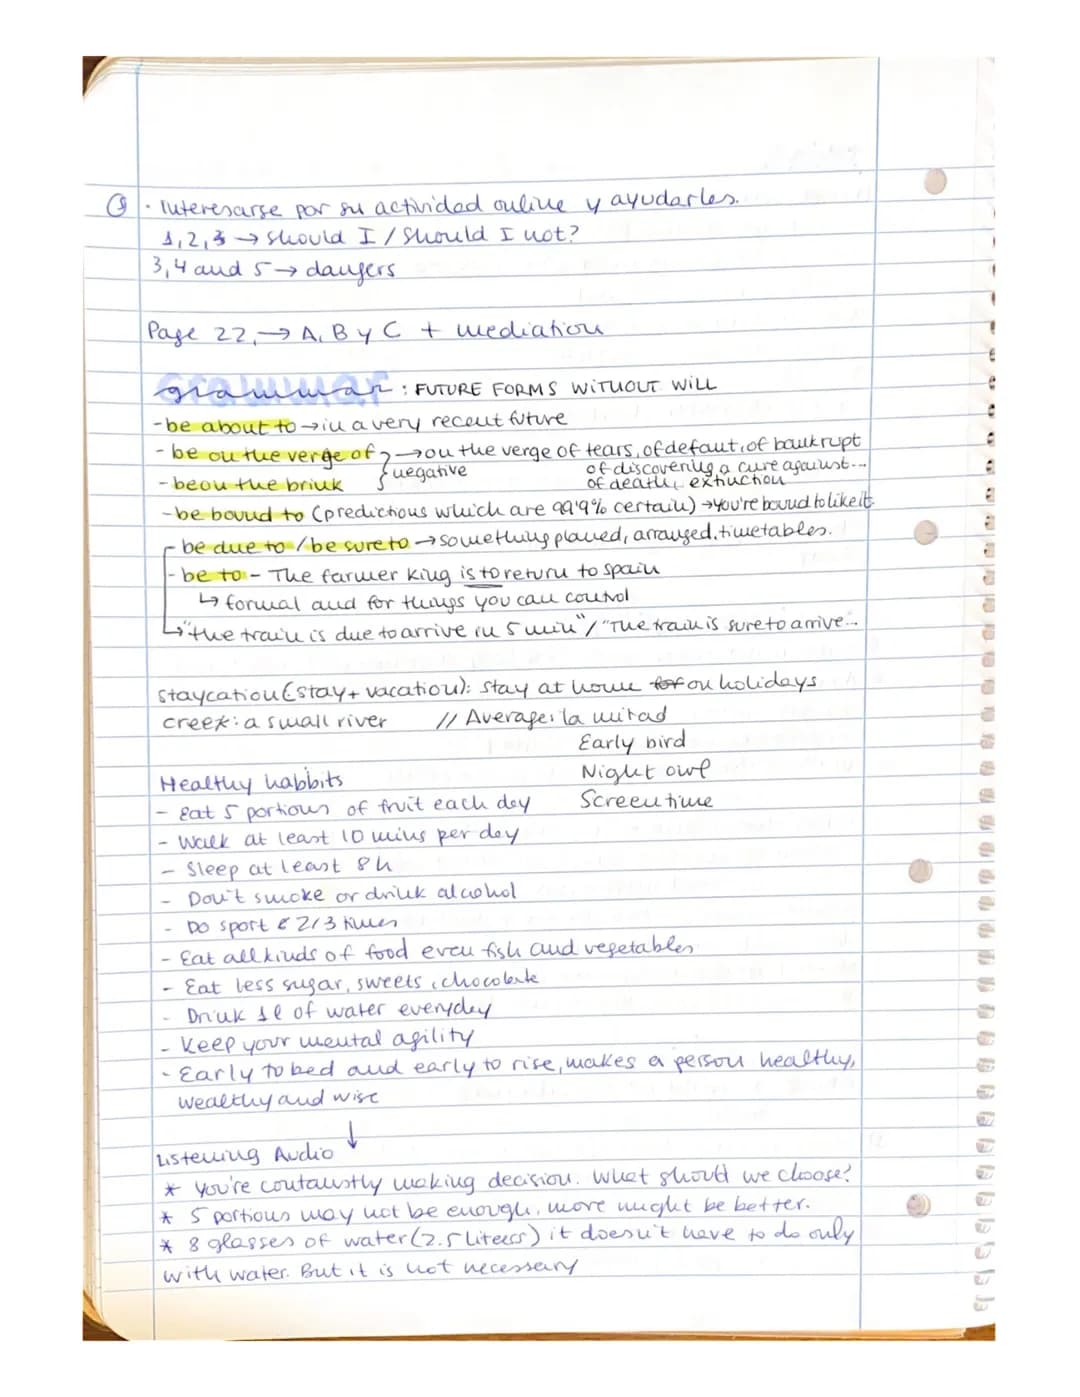 · Interesarse por su actividad online y ayudarles.
1,2,3 → should I / Should I not?
3,4 and 5 → dangers
Page 22, → A, B y C + mediation
grammar : FUTURE FORMS WITHOUT WILL
- be about to → in a very recent future
- be on the verge of → on the verge of tears, of defaut, of bankrupt
of discovering a cure against...
- be on the brink } negative of death, extinction
- be bound to (predictions which are 99'9% certain) → you're bound to like it.
- be due to / be sure to → something planed, arranged, timetables.
- be to - The farmer king is to return to spain
↳ formal and for things you can control
↳ "the train is due to arrive in 5 min" / "The train is sure to arrive...
staycation (stay + vacation): stay at home for on holidays
creek: a small river // Average: la mitad
Early bird
Healthy habbits Night owl
- Eat 5 portions of fruit each day Screen time
- Walk at least 10 mins per day
- Sleep at least 8h
- Don't smoke or drink alcohol
- Do sport 2/3 times
- Eat all kinds of food even fish and vegetables
- Eat less sugar, sweets, chocolate
- Drink 1l of water everyday
- Keep your mental agility
- Early to bed and early to rise, makes a person healthy,
wealthy and wise
↓
Listening Audio
* You're contanstly making decision. What should we choose?
* 5 portions may not be enough, more might be better.
* 8 glasses of water (2.5 liters) it doesn't have to do only
with water. But it is not necessary